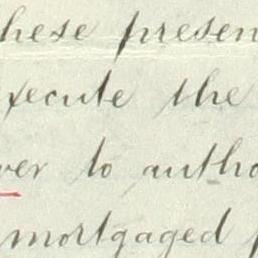 hese presen
xecute the
ver to autho
mortgaged p